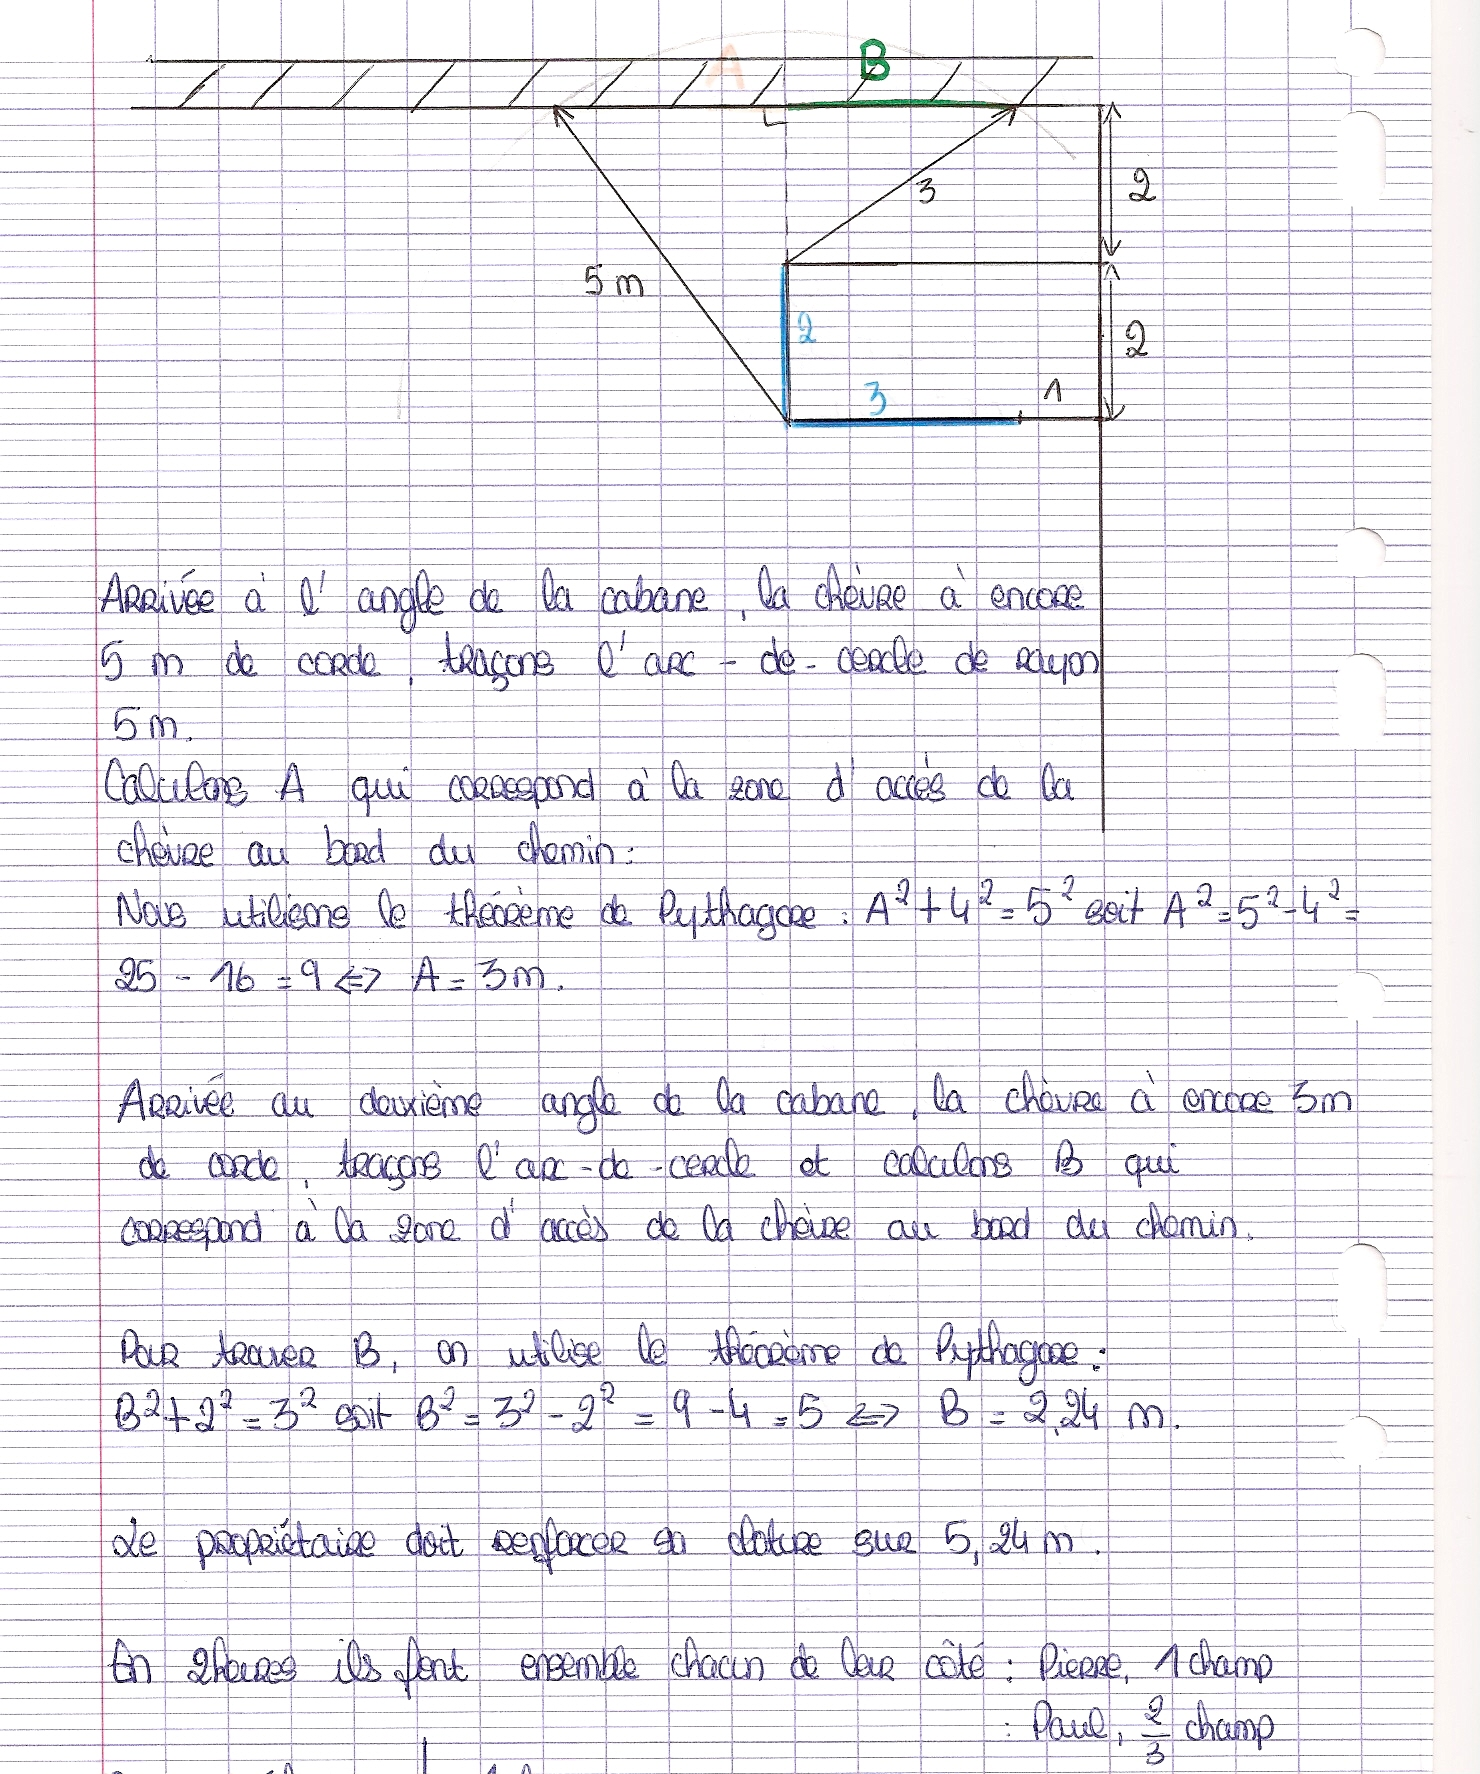 A
B
3
2
5 m
2
2
3
1
Arrivée à l'angle de la cabane, la chèvre à encore
5 m de corde, traçons l'arc-de-cercle de rayon
5 m.
Calculons A qui correspond à la zone d'accès de la
chèvre au bord du chemin :
Nous utilisons le théorème de Pythagore : A² + 4² = 5² soit A² = 5² - 4² =
25 - 16 = 9 <=> A = 3 m.
Arrivée au deuxième angle de la cabane, la chèvre à encore 3 m
de corde, traçons l'arc-de-cercle et calculons B qui
correspond à la zone d'accès de la chèvre au bord du chemin.
Pour trouver B, on utilise le théorème de Pythagore :
B² + 2² = 3² soit B² = 3² - 2² = 9 - 4 = 5 <=> B = 2,24 m.
Le propriétaire doit renforcer sa cloture sur 5,24 m.
En 2 heures ils font ensemble chacun de leur côté : Pierre, 1 champ
: Paul, 2/3 champ